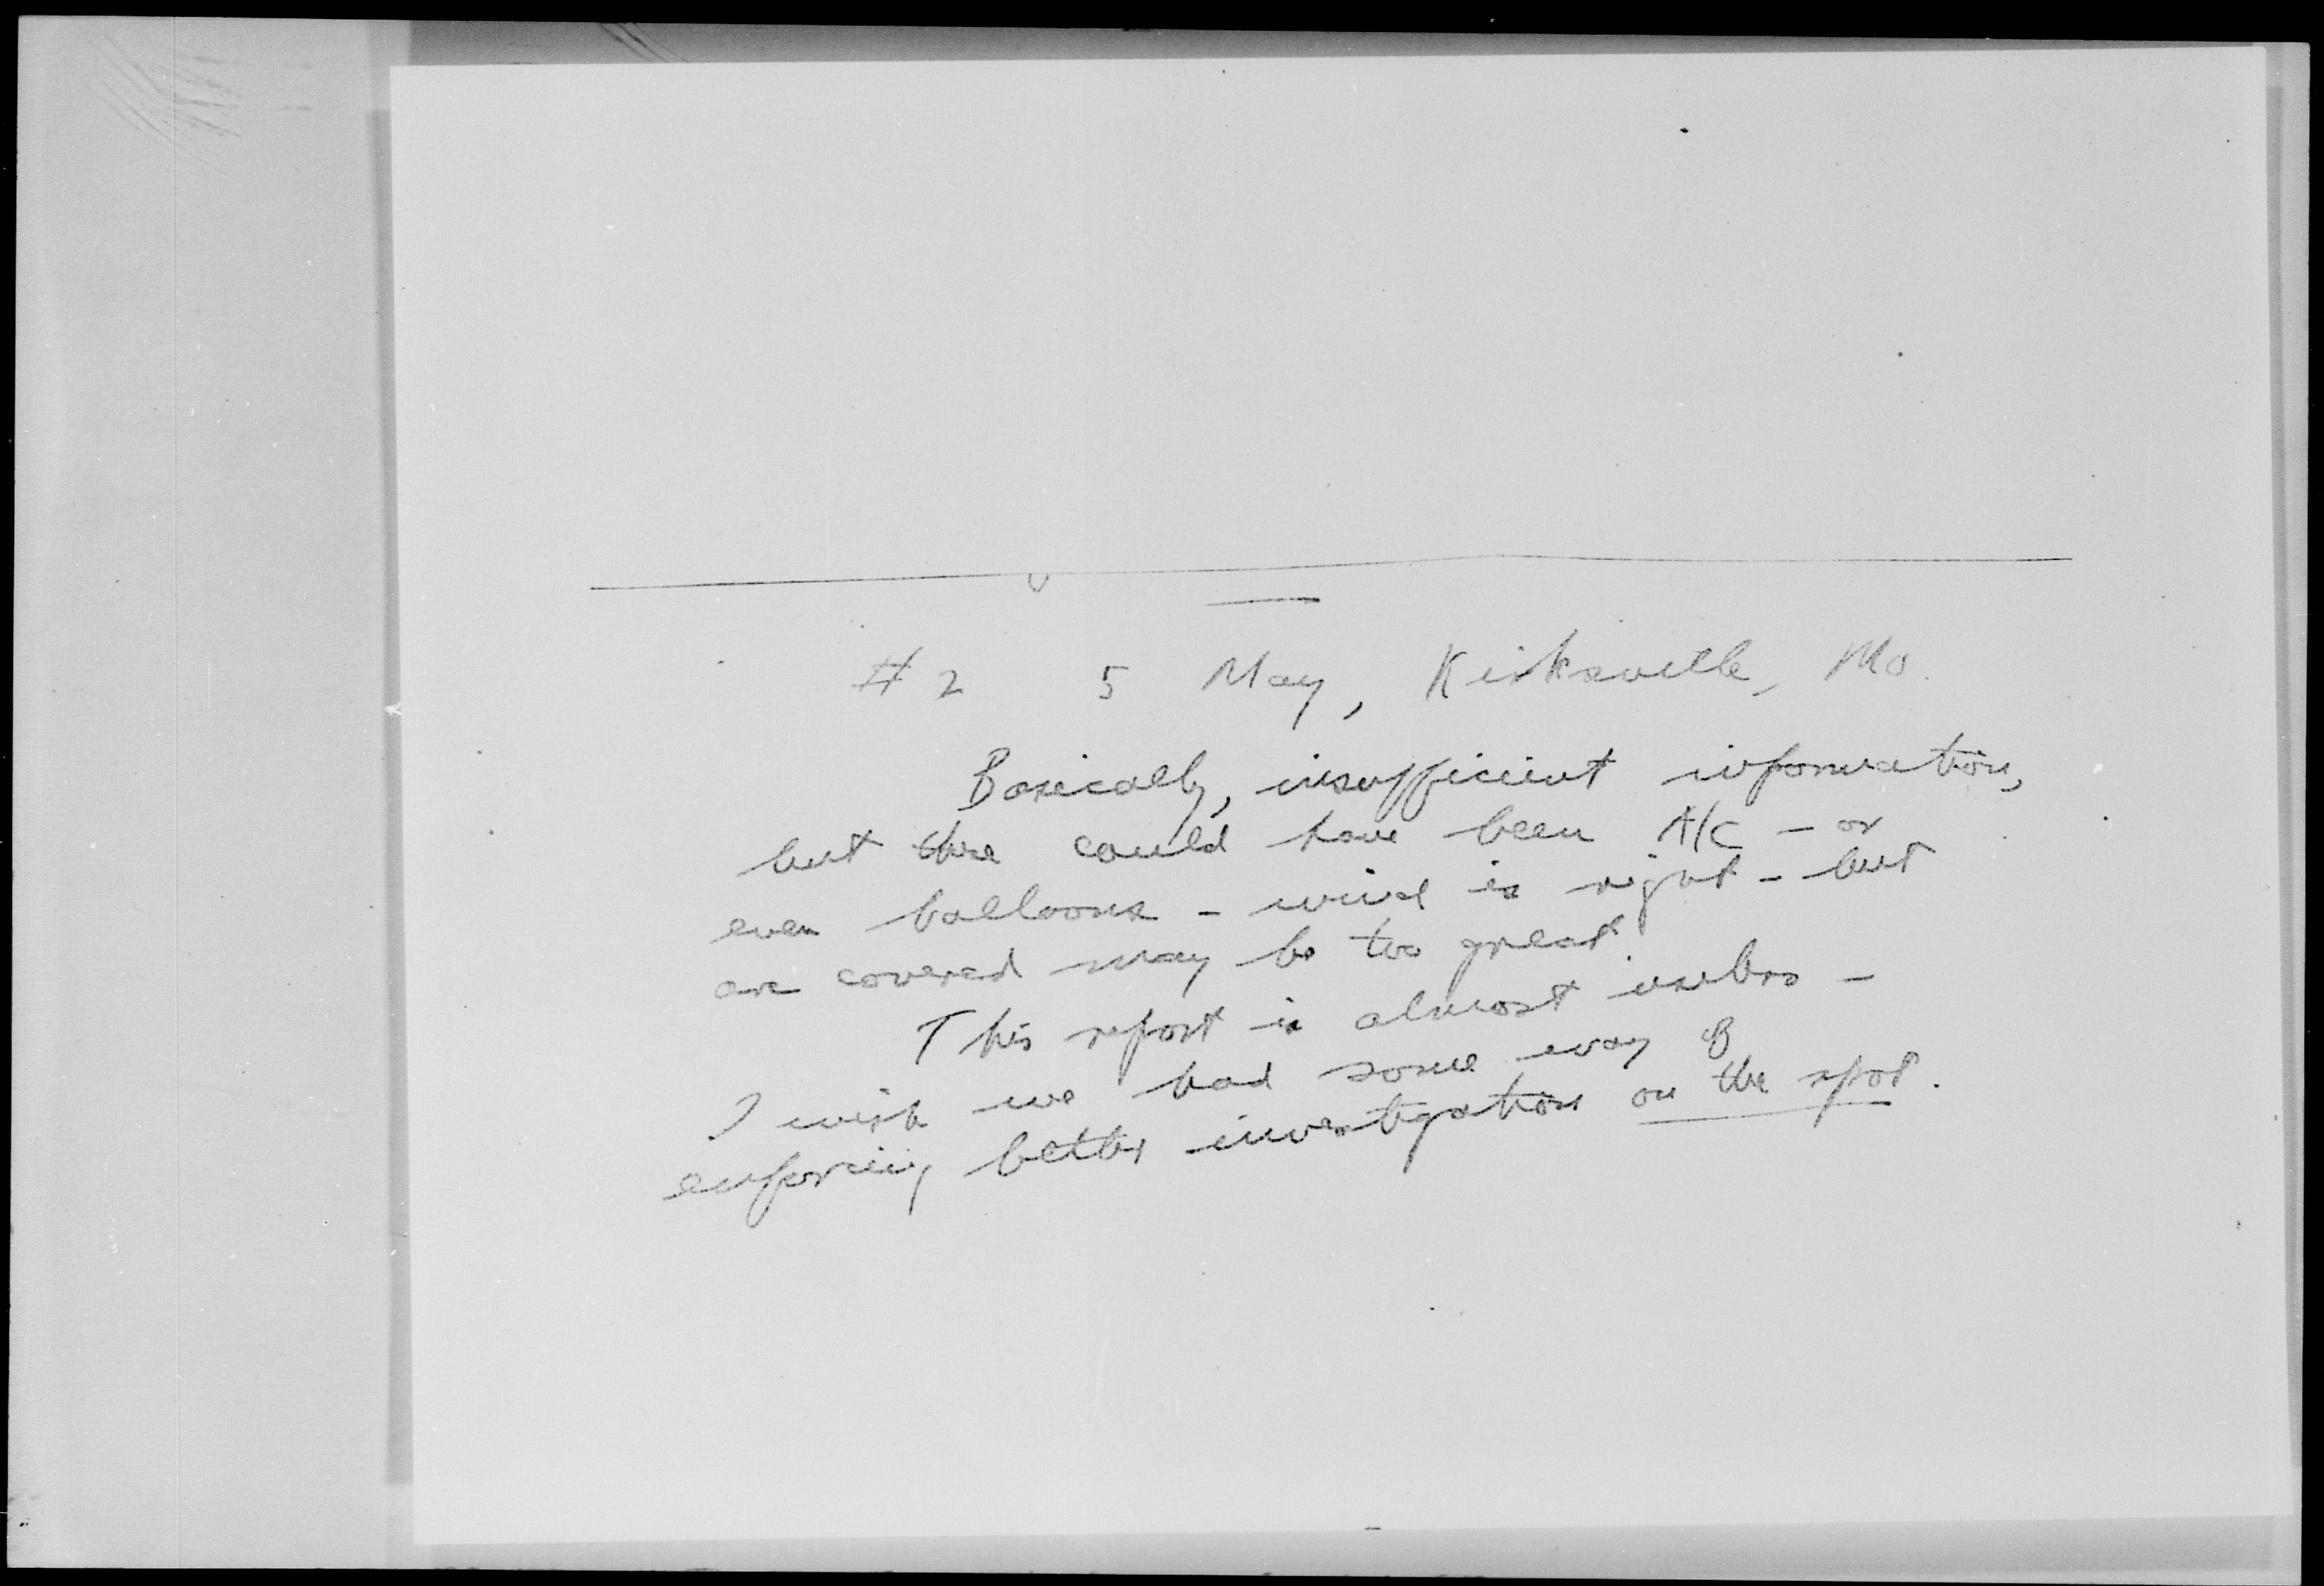 # 2 5 May, Kirksville, Mo.
Basically, insufficient information,
but there could have been A/C - or
even balloons - wind is right - but
arc covered may be too great.
This report is almost useless -
I wish we had some way of
enforcing better investigation on the spot.